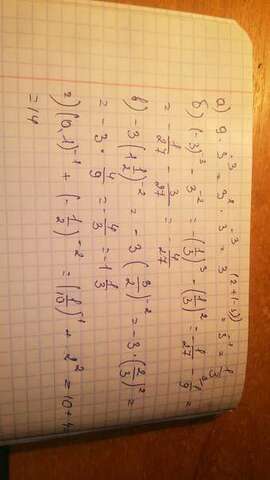 а) 9 · 3^-3 = 3^2 · 3^-3 = 3^(2+(-3)) = 3^-1 = 1/3
б) (-3)^-3 - 3^-2 = -(1/3)^3 - (1/3)^2 = -1/27 - 1/9 =
= -1/27 - 3/27 = -4/27
в) -3 (1 1/2)^-2 = -3 (3/2)^-2 = -3 · (2/3)^2 =
= -3 · 4/9 = -4/3 = -1 1/3
г) (0,1)^-1 + (-1/2)^-2 = (1/10)^-1 + 2^2 = 10 + 4
= 14